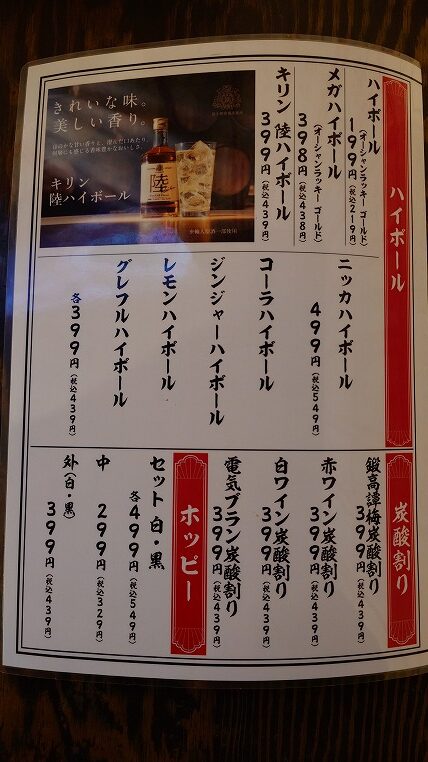 ハイボール
ハイボール
(オーシャンラッキー ゴールド)
199円(税込219円)
メガハイボール
(オーシャンラッキー ゴールド)
398円(税込438円)
キリン 陸ハイボール
399円(税込439円)
きれいな味。
美しい香り。
キリン
陸ハイボール
陸
※輸入原酒一部使用
ニッカハイボール
499円(税込549円)
コーラハイボール
ジンジャーハイボール
レモンハイボール
グレフルハイボール
各399円(税込439円)
炭酸割り
鍛高譚梅炭酸割り
399円(税込439円)
赤ワイン炭酸割り
399円(税込439円)
白ワイン炭酸割り
399円(税込439円)
電気ブラン炭酸割り
399円(税込439円)
ホッピー
セット 白・黒
各499円(税込549円)
中
299円(税込329円)
外(白・黒)
399円(税込439円)